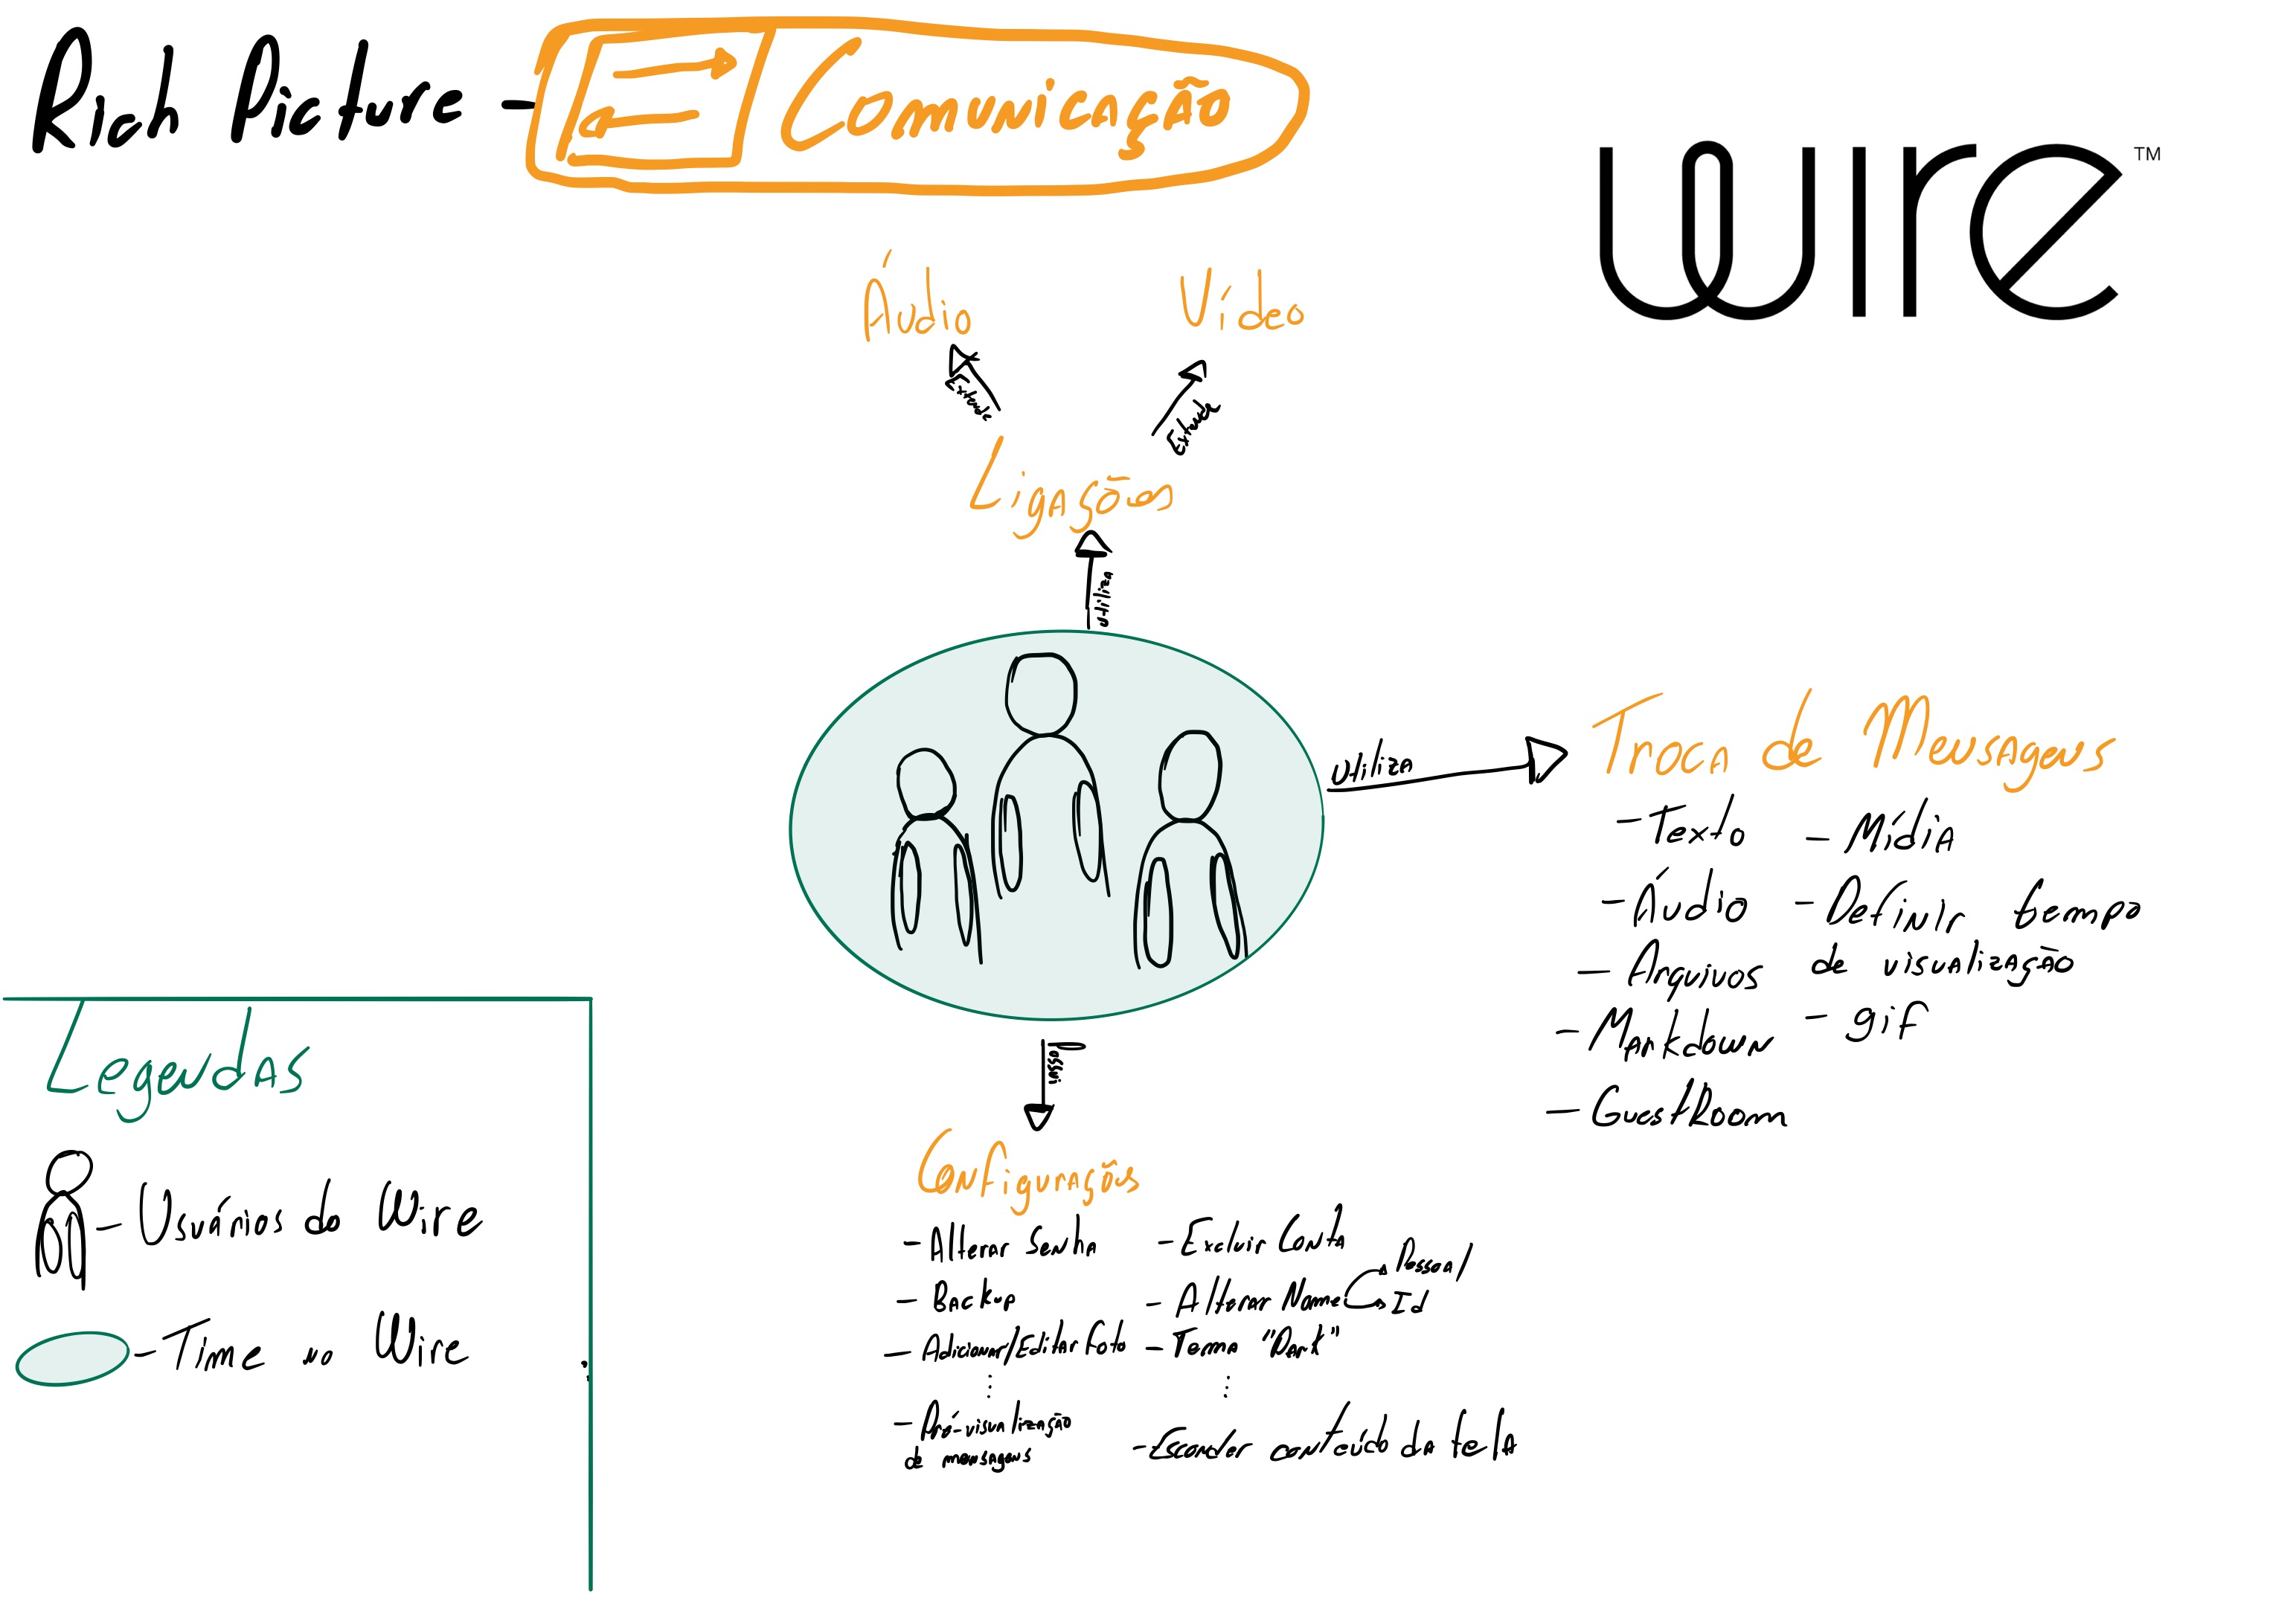 Rich Picture - Comunicação
wire™
Áudio
Vídeo
Extende
Extende
Ligações
Utiliza
Utiliza
Troca de Mensagens
- Texto
- Áudio
- Arquivos
- Markdown
- GuestRoom
- Mídia
- Definir tempo
de visualização
- gif
Possui
Configurações
- Alterar Senha
- Backup
- Adicionar/Editar Foto
- Pré-visualização
de mensagens
- Excluir Conta
- Alterar Nome
Pessoal
Id
- Tema "Dark"
- Esconder conteúdo da tela
Legendas
- Usuários do Wire
- Time no Wire